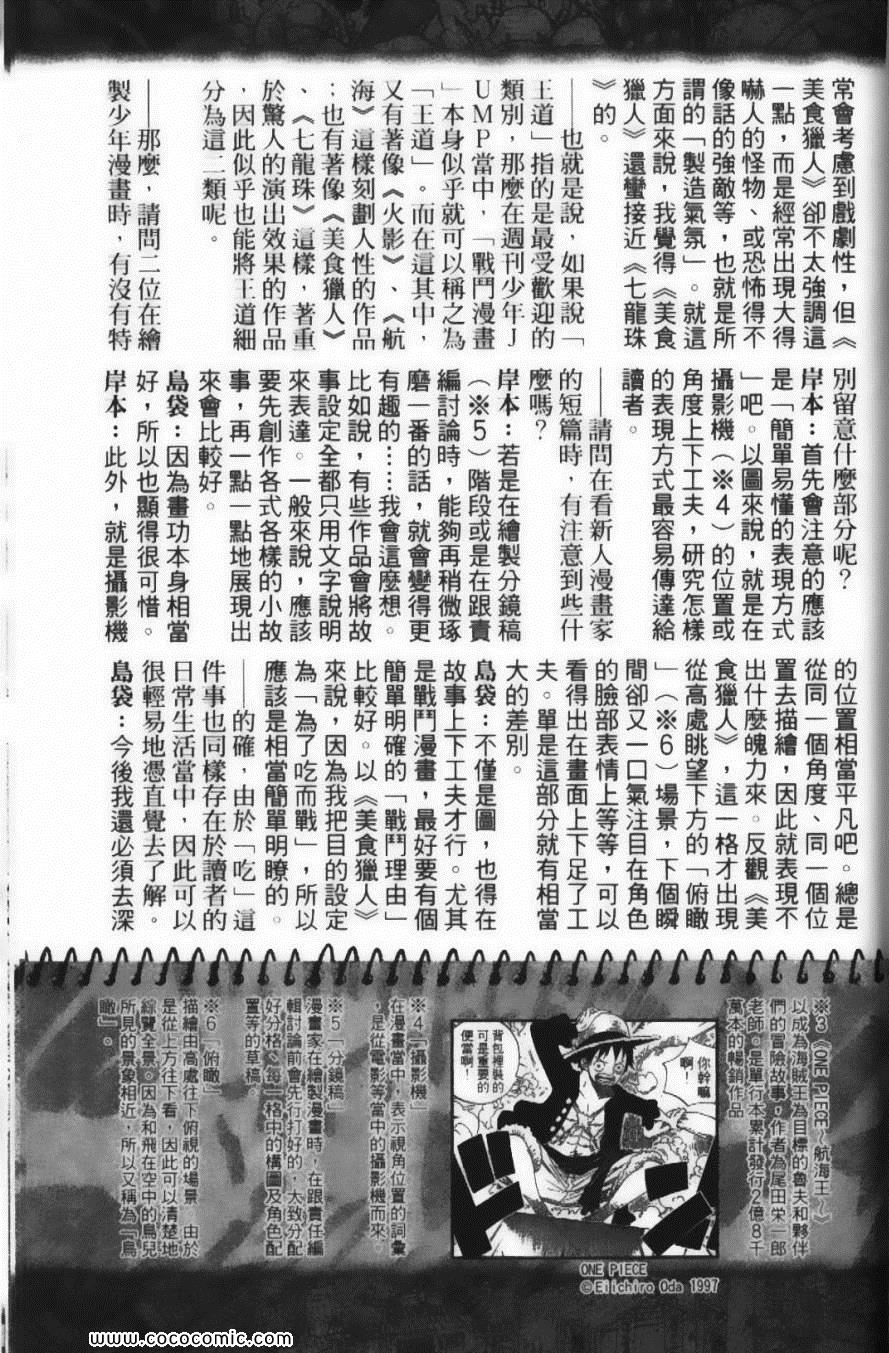 常會考慮到戲劇性，但《
美食獵人》卻不太強調這
一點，而是經常出現大得
嚇人的怪物、或恐怖得不
像話的強敵等，也就是所
謂的「製造氣氛」。就這
方面來說，我覺得《美食
獵人》還蠻接近《七龍珠
》的。
——也就是說，如果說「
王道」指的是最受歡迎的
類別，那麼在週刊少年J
UMP當中，「戰鬥漫畫
」本身似乎就可以稱之為
「王道」。而在這其中，
又有著像《火影》、《航
海》這樣刻劃人性的作品
；也有著像《美食獵人》
、《七龍珠》這樣，著重
於驚人的演出效果的作品
，因此似乎也能將王道細
分為這二類呢。
——那麼，請問二位在繪
製少年漫畫時，有沒有特
別留意什麼部分呢？
岸本：首先會注意的應該
是「簡單易懂的表現方式
」吧。以圖來說，就是在
攝影機（※4）的位置或
角度上下工夫，研究怎樣
的表現方式最容易傳達給
讀者。
——請問在看新人漫畫家
的短篇時，有注意到些什
麼嗎？
岸本：若是在繪製分鏡稿
（※5）階段或是在跟責
編討論時，能夠再稍微琢
磨一番的話，就會變得更
有趣的……我會這麼想。
比如說，有些作品會將故
事設定全都只用文字說明
來表達。一般來說，應該
要先創作各式各樣的小故
事，再一點一點地展現出
來會比較好。
島袋：因為畫功本身相當
好，所以也顯得很可惜。
岸本：此外，就是攝影機
的位置相當平凡吧。總是
從同一個角度、同一個位
置去描繪，因此就表現不
出什麼魄力來。反觀《美
食獵人》，這一格才出現
從高處眺望下方的「俯瞰
」（※6）場景，下個瞬
間卻又一口氣注目在角色
的臉部表情上等等，可以
看得出在畫面上下足了工
夫。單是這部分就有相當
大的差別。
島袋：不僅是圖，也得在
故事上下工夫才行。尤其
是戰鬥漫畫，最好要有個
簡單明確的「戰鬥理由」
比較好。以《美食獵人》
來說，因為我把目的設定
為「為了吃而戰」，所以
應該是相當簡單明瞭的。
——的確，由於「吃」這
件事也同樣存在於讀者的
日常生活當中，因此可以
很輕易地憑直覺去了解。
島袋：今後我還必須去深
※3《ONE PIECE～航海王～》
以成為海賊王為目標的魯夫和夥伴
們的冒險故事，作者為尾田栄一郎
老師。是單行本累計發行2億8千
萬本的暢銷作品。
你幹嘛
啊！
背包裡裝的
可是重要的
便當啊！
ONE PIECE
©Eiichiro Oda 1997
※4「攝影機」
在漫畫當中，表示視角位置的詞彙
，是從電影等當中的攝影機而來。
※5「分鏡稿」
漫畫家在繪製漫畫時，在跟責任編
輯討論前會先行打好的，大致分配
好分格、每一格中的構圖及角色配
置等的草稿。
※6「俯瞰」
描繪由高處往下俯視的場景。由於
是從上方往下看，因此可以清楚地
綜覽全景。因為和飛在空中的鳥兒
所見的景象相近，所以又稱為「鳥
瞰」。
http://www.cococomic.com/